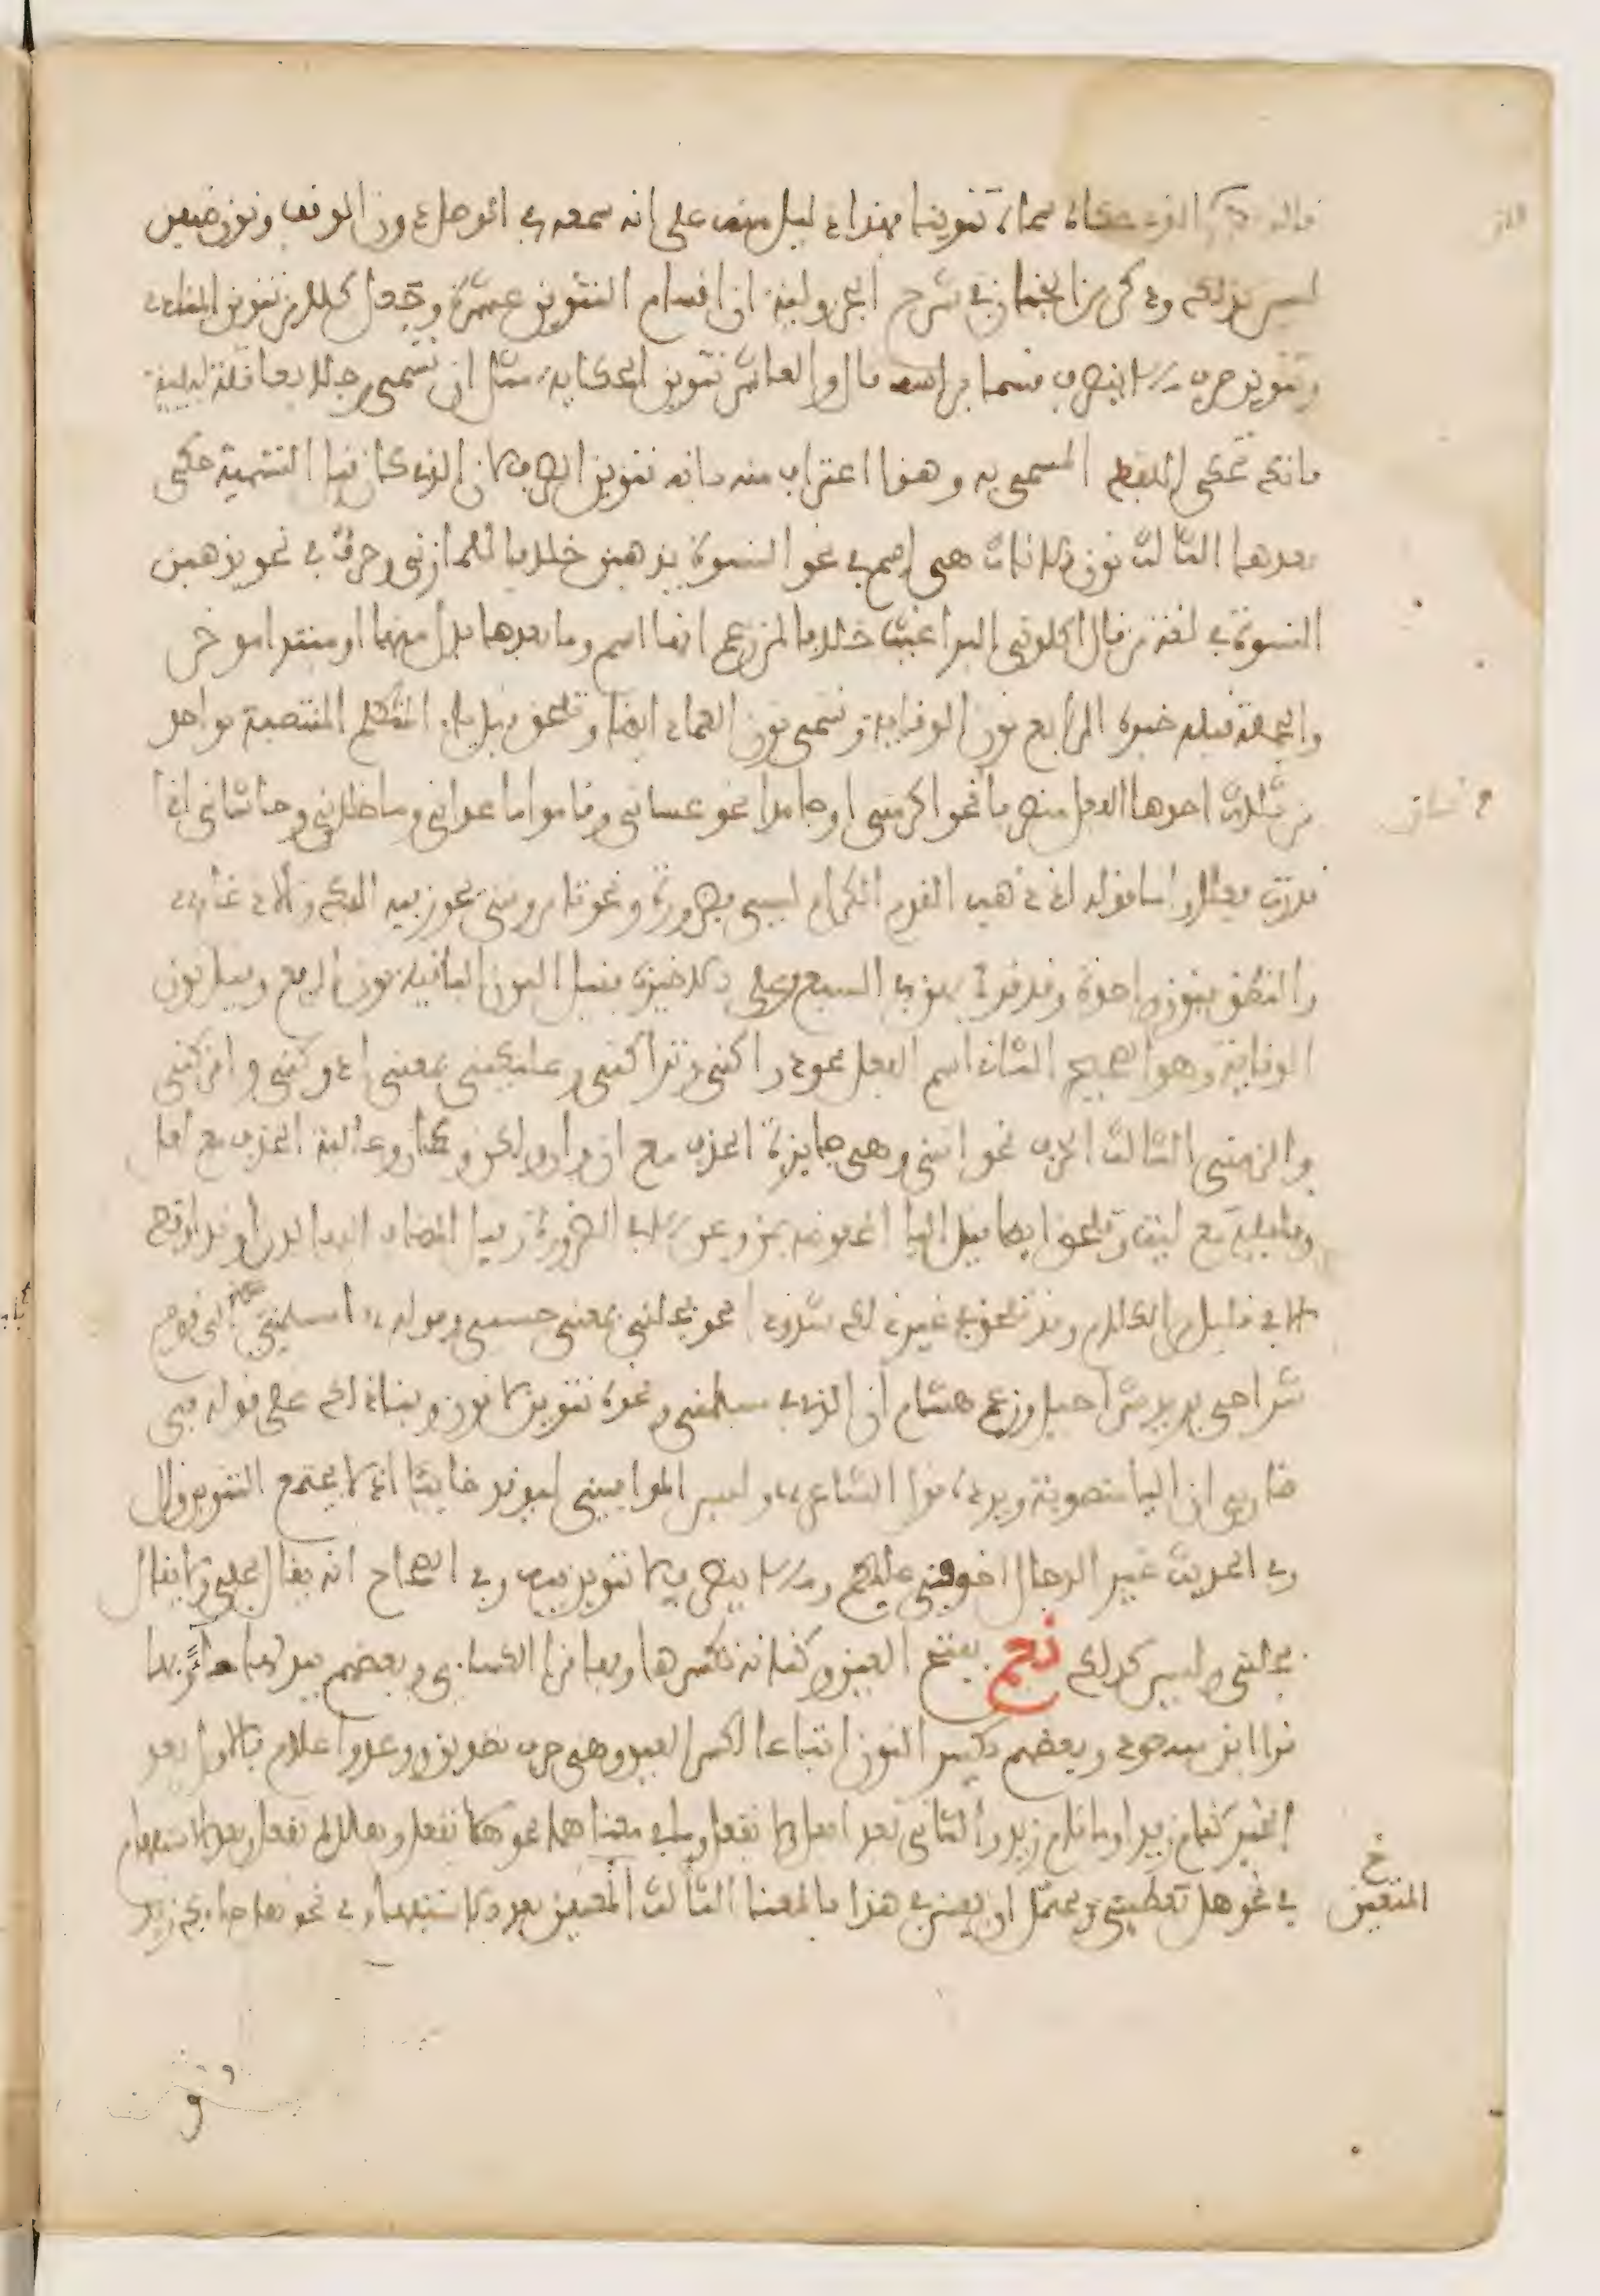 الذي حكاه سماه تنوينا فهذا دليل منه على انه سمعه في الوصل دون الوقف ونون ضيفن
ليس كذلك وذكر ابن الخباز في شرح الجزولية ان اقسام التنوين عشرة وجعل كلا من تنوين المنادى
وتنوين صرف ما لا ينصرف قسما براسه قال والعاشر تنوين الحكاية مثل ان تسمي رجلا بعاقلة لبيبة
فانك تحكي اللفظ المسمى به وهذا اعتراف منه بانه تنوين الصرف لان الذي كان قبل التسمية حكي
بعدها الثالث نون الاناث هي اسم في نحو النسوة يذهبن خلافا للمازني وحرف في نحو يذهبن
النسوة في لغة من قال اكلوني البراغيث خلافا لمن زعم انها اسم وما بعدها بدل منها او مبتدا موخر
والجملة قبله خبره الرابع نون الوقاية وتسمى نون العماد ايضا وتلحق قبل ياء المتكلم المنتصبة بواحد
من ثلاث احدها الفعل متصرفا نحو اكرمني او جامدا نحو عساني وقاموا ما عداني وما خلاني وحاشاني ان
قدرت فعلا واما قوله اذ ذهب القوم الكرام ليسي فضرورة ونحو تامرونني يجوز فيه الفك والادغام
والنطق بنون واحدة وقد قرئ بهن في السبع وعلى الاخيرة فقيل النون الباقية نون الرفع وقيل نون
الوقاية وهو الصحيح الثاني اسم الفعل نحو دراكني وتراكني وعليكني بمعنى ادركني واتركني
والزمني الثالث الحرف نحو انني وهي جايزة الحذف مع ان وان ولكن وكان وغالبة الحذف مع لعل
وقليلة مع ليت وتلحق ايضا قبل اليا المخفوضة بمن وعن الا في الضرورة وقبل المضاف اليها لدن او قد او قط
الا في قليل من الكلام وقد تلحق في غير ذلك شذوذا نحو بجلني بمعنى حسبي وقوله امسلمني الى قومي
شراحي يريد شراحيل وزعم هشام ان الذي في مسلمني ونحوه تنوين لا نون وبنى ذلك على قوله في
ضاربي ان اليا منصوبة ويرده قول الشاعر وليس الموافيني ليرفد خائبا اذ لا يجتمع التنوين وال
وفي الحديث غير الدجال اخوفني عليكم وما لا ينصرف لا تنوين فيه وفي الصحاح انه يقال بجلي ولا يقال
بجلني وليس كذلك نعم بفتح العين وكنانة تكسرها وبها قرا الكساءي وبعضهم يبدلها حاء وبها
قرا ابن مسعود وبعضهم يكسر النون اتباعا لكسر العين وهي حرف تصديق ووعد واعلام فالاول بعد
الخبر كقام زيد او ما قام زيد والثاني بعد افعل ولا تفعل وما في معناهما نحو هلا تفعل وهلا لم تفعل وبعد الاستفهام
في نحو هل تعطيني ويحتمل ان يفسر في هذا بالمعنى الثالث المتعين بعد الاستفهام في نحو هل جاءك زيد
خ
المتعين